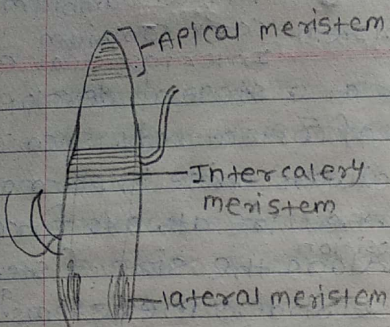 Apical meristem
Intercalery
meristem
lateral meristem